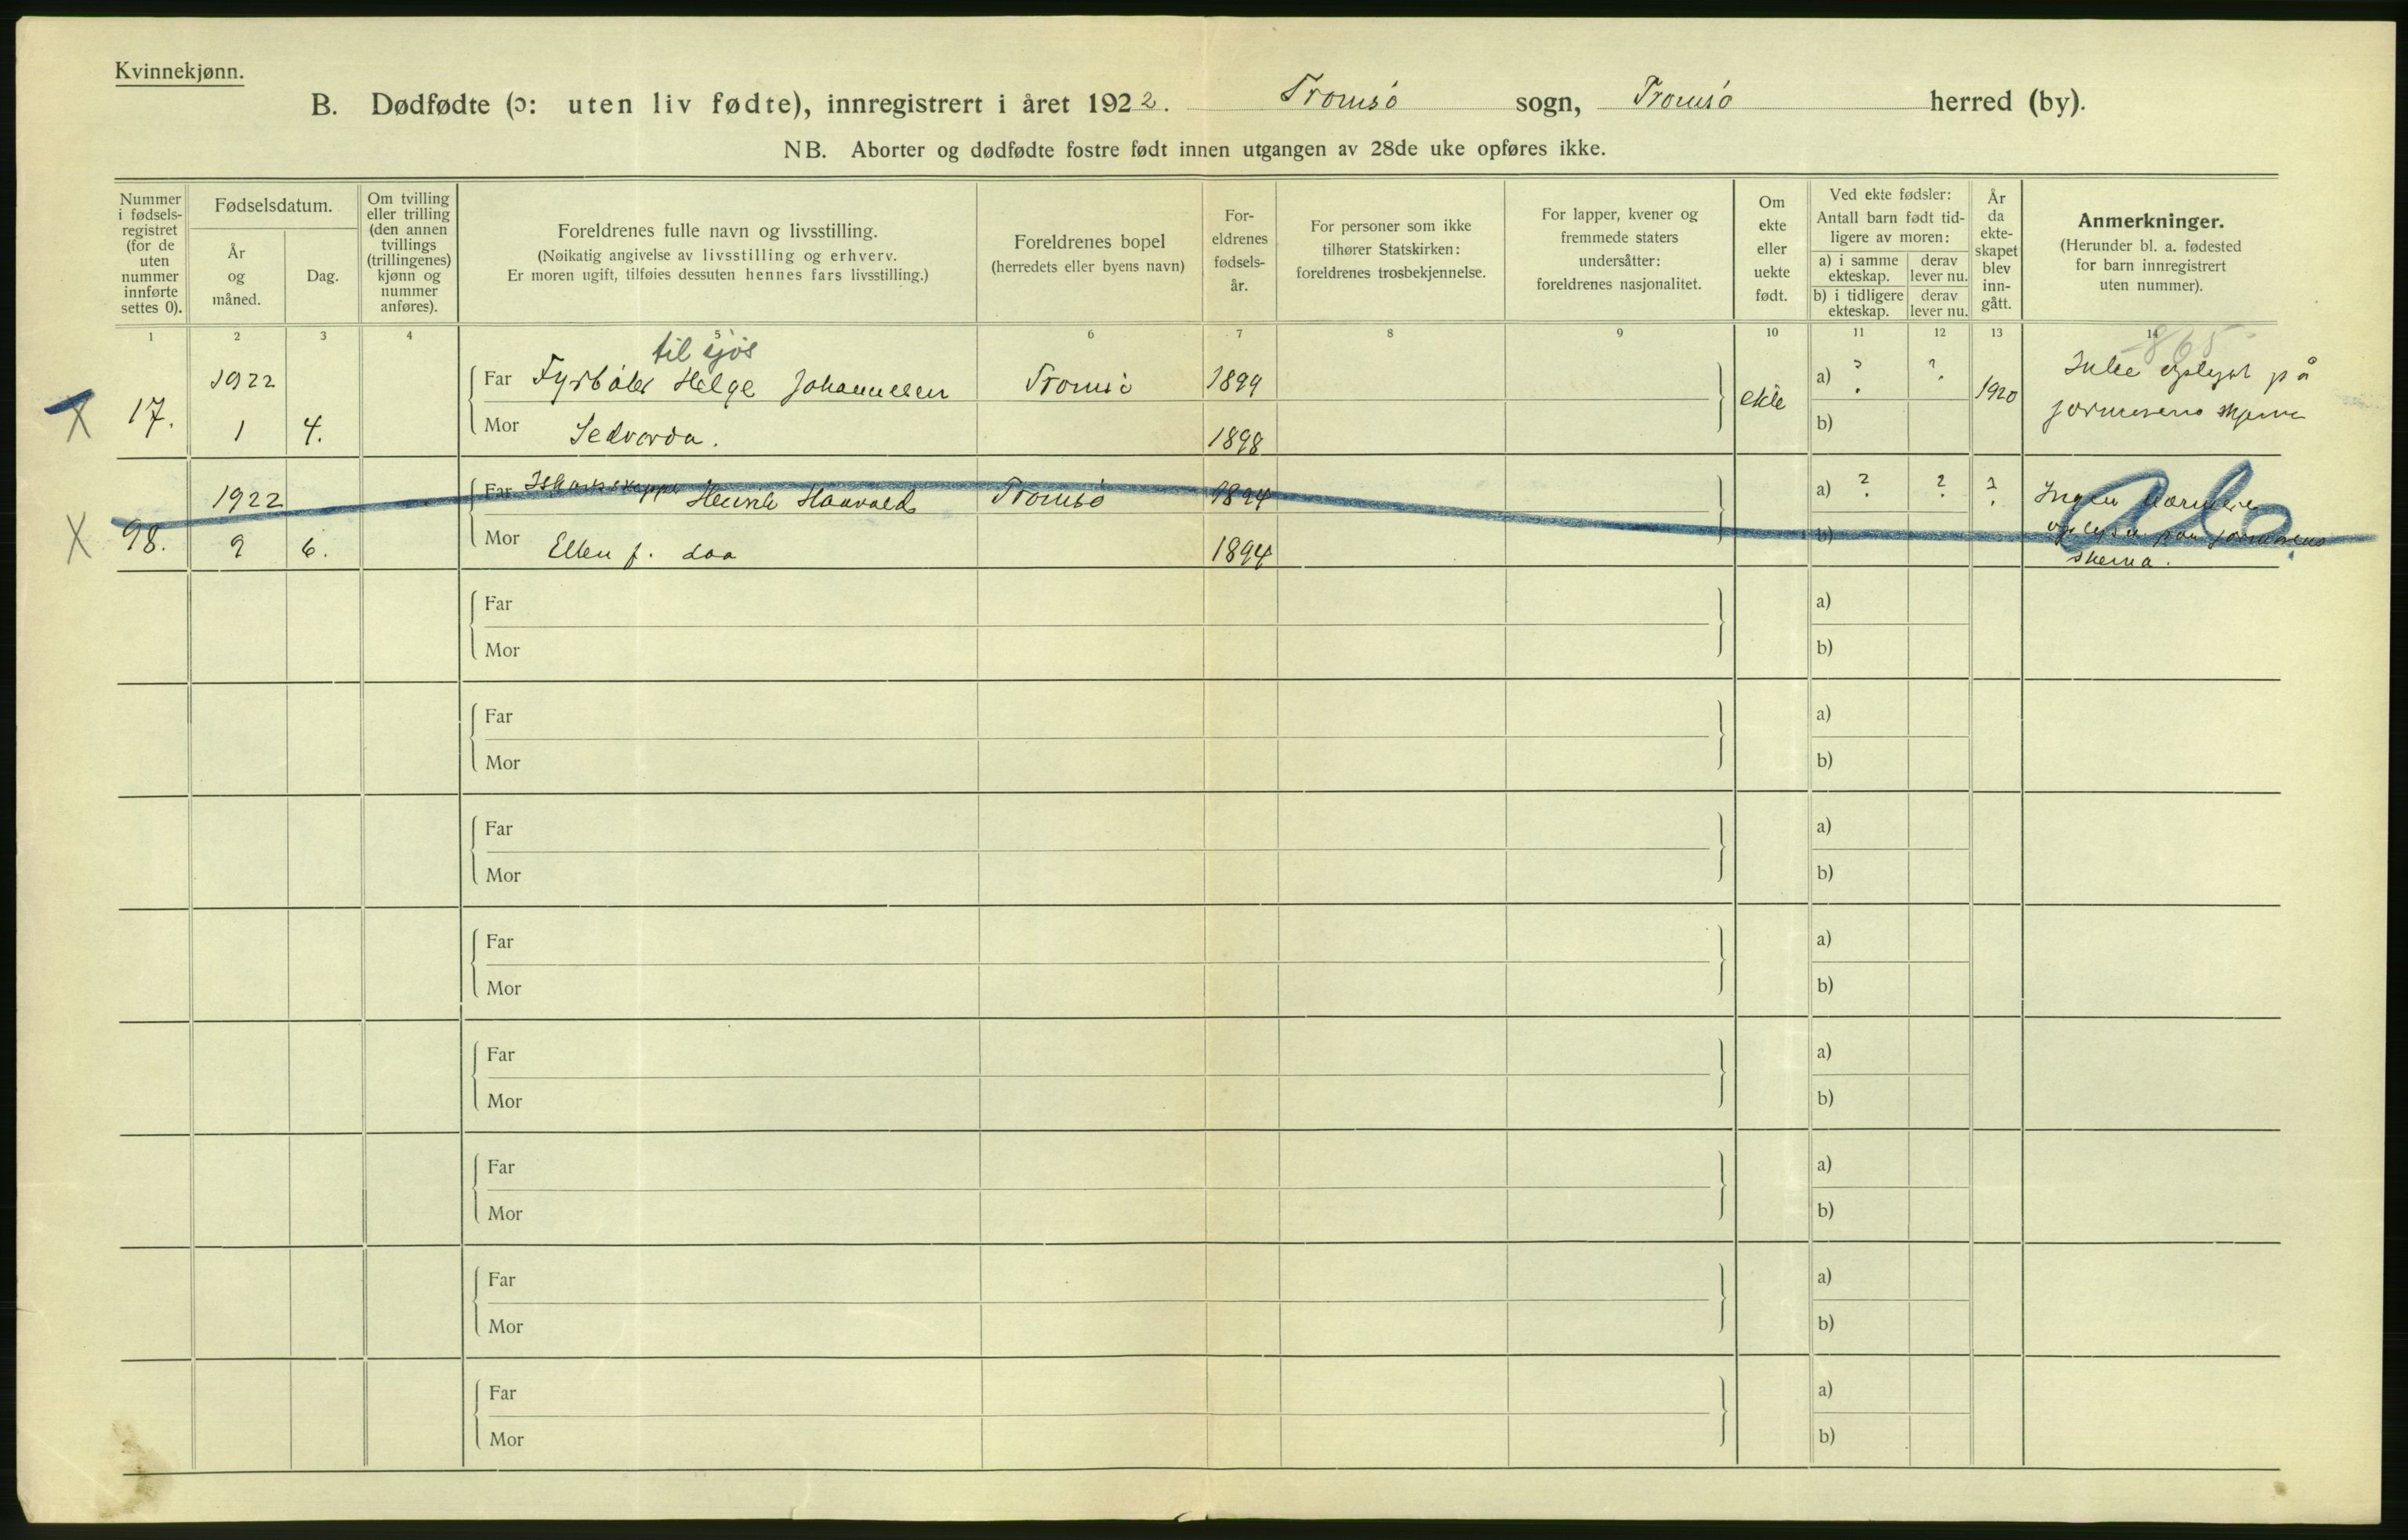 Kvinnekjønn.
B. Dødfødte (ɔ: uten liv fødte), innregistrert i året 1922. Tromsø sogn, Tromsø herred (by).
NB. Aborter og dødfødte fostre født innen utgangen av 28de uke opføres ikke.
Nummer i fødsels-registret (for de uten nummer innførte settes 0).
Fødselsdatum.
År og måned.
Dag.
Om tvilling eller trilling (den annen tvillings (trillingenes) kjønn og nummer anføres).
Foreldrenes fulle navn og livsstilling.
(Nøikatig angivelse av livsstilling og erhverv.
Er moren ugift, tilføies dessuten hennes fars livsstilling.)
Foreldrenes bopel
(herredets eller byens navn)
For-eldrenes fødsels-år.
For personer som ikke tilhører Statskirken: foreldrenes trosbekjennelse.
For lapper, kvener og fremmede staters undersåtter: foreldrenes nasjonalitet.
Om ekte eller uekte født.
Ved ekte fødsler:
Antall barn født tid-ligere av moren:
a) i samme ekteskap.
derav lever nu.
b) i tidligere ekteskap.
derav lever nu.
År da ekte-skapet blev inn-gått.
Anmerkninger.
(Herunder bl. a. fødested for barn innregistrert uten nummer).
1 2 3 4 5 6 7 8 9 10 11 12 13 14
865
til sjøs
17. 1922 1 4. Far Fyrbøter Helge Johannesen Tromsø 1899 ekte a) ? ? 1920 på
Mor 1898 b)
98. 1922 9 6. Far Henrik Haavald Tromsø 1894 a) ? ? ? Ingen nærmere
Mor Ellen f. Daa 1894 b)
skema.
Far a)
Mor b)
Far a)
Mor b)
Far a)
Mor b)
Far a)
Mor b)
Far a)
Mor b)
Far a)
Mor b)
Far a)
Mor b)
Far a)
Mor b)